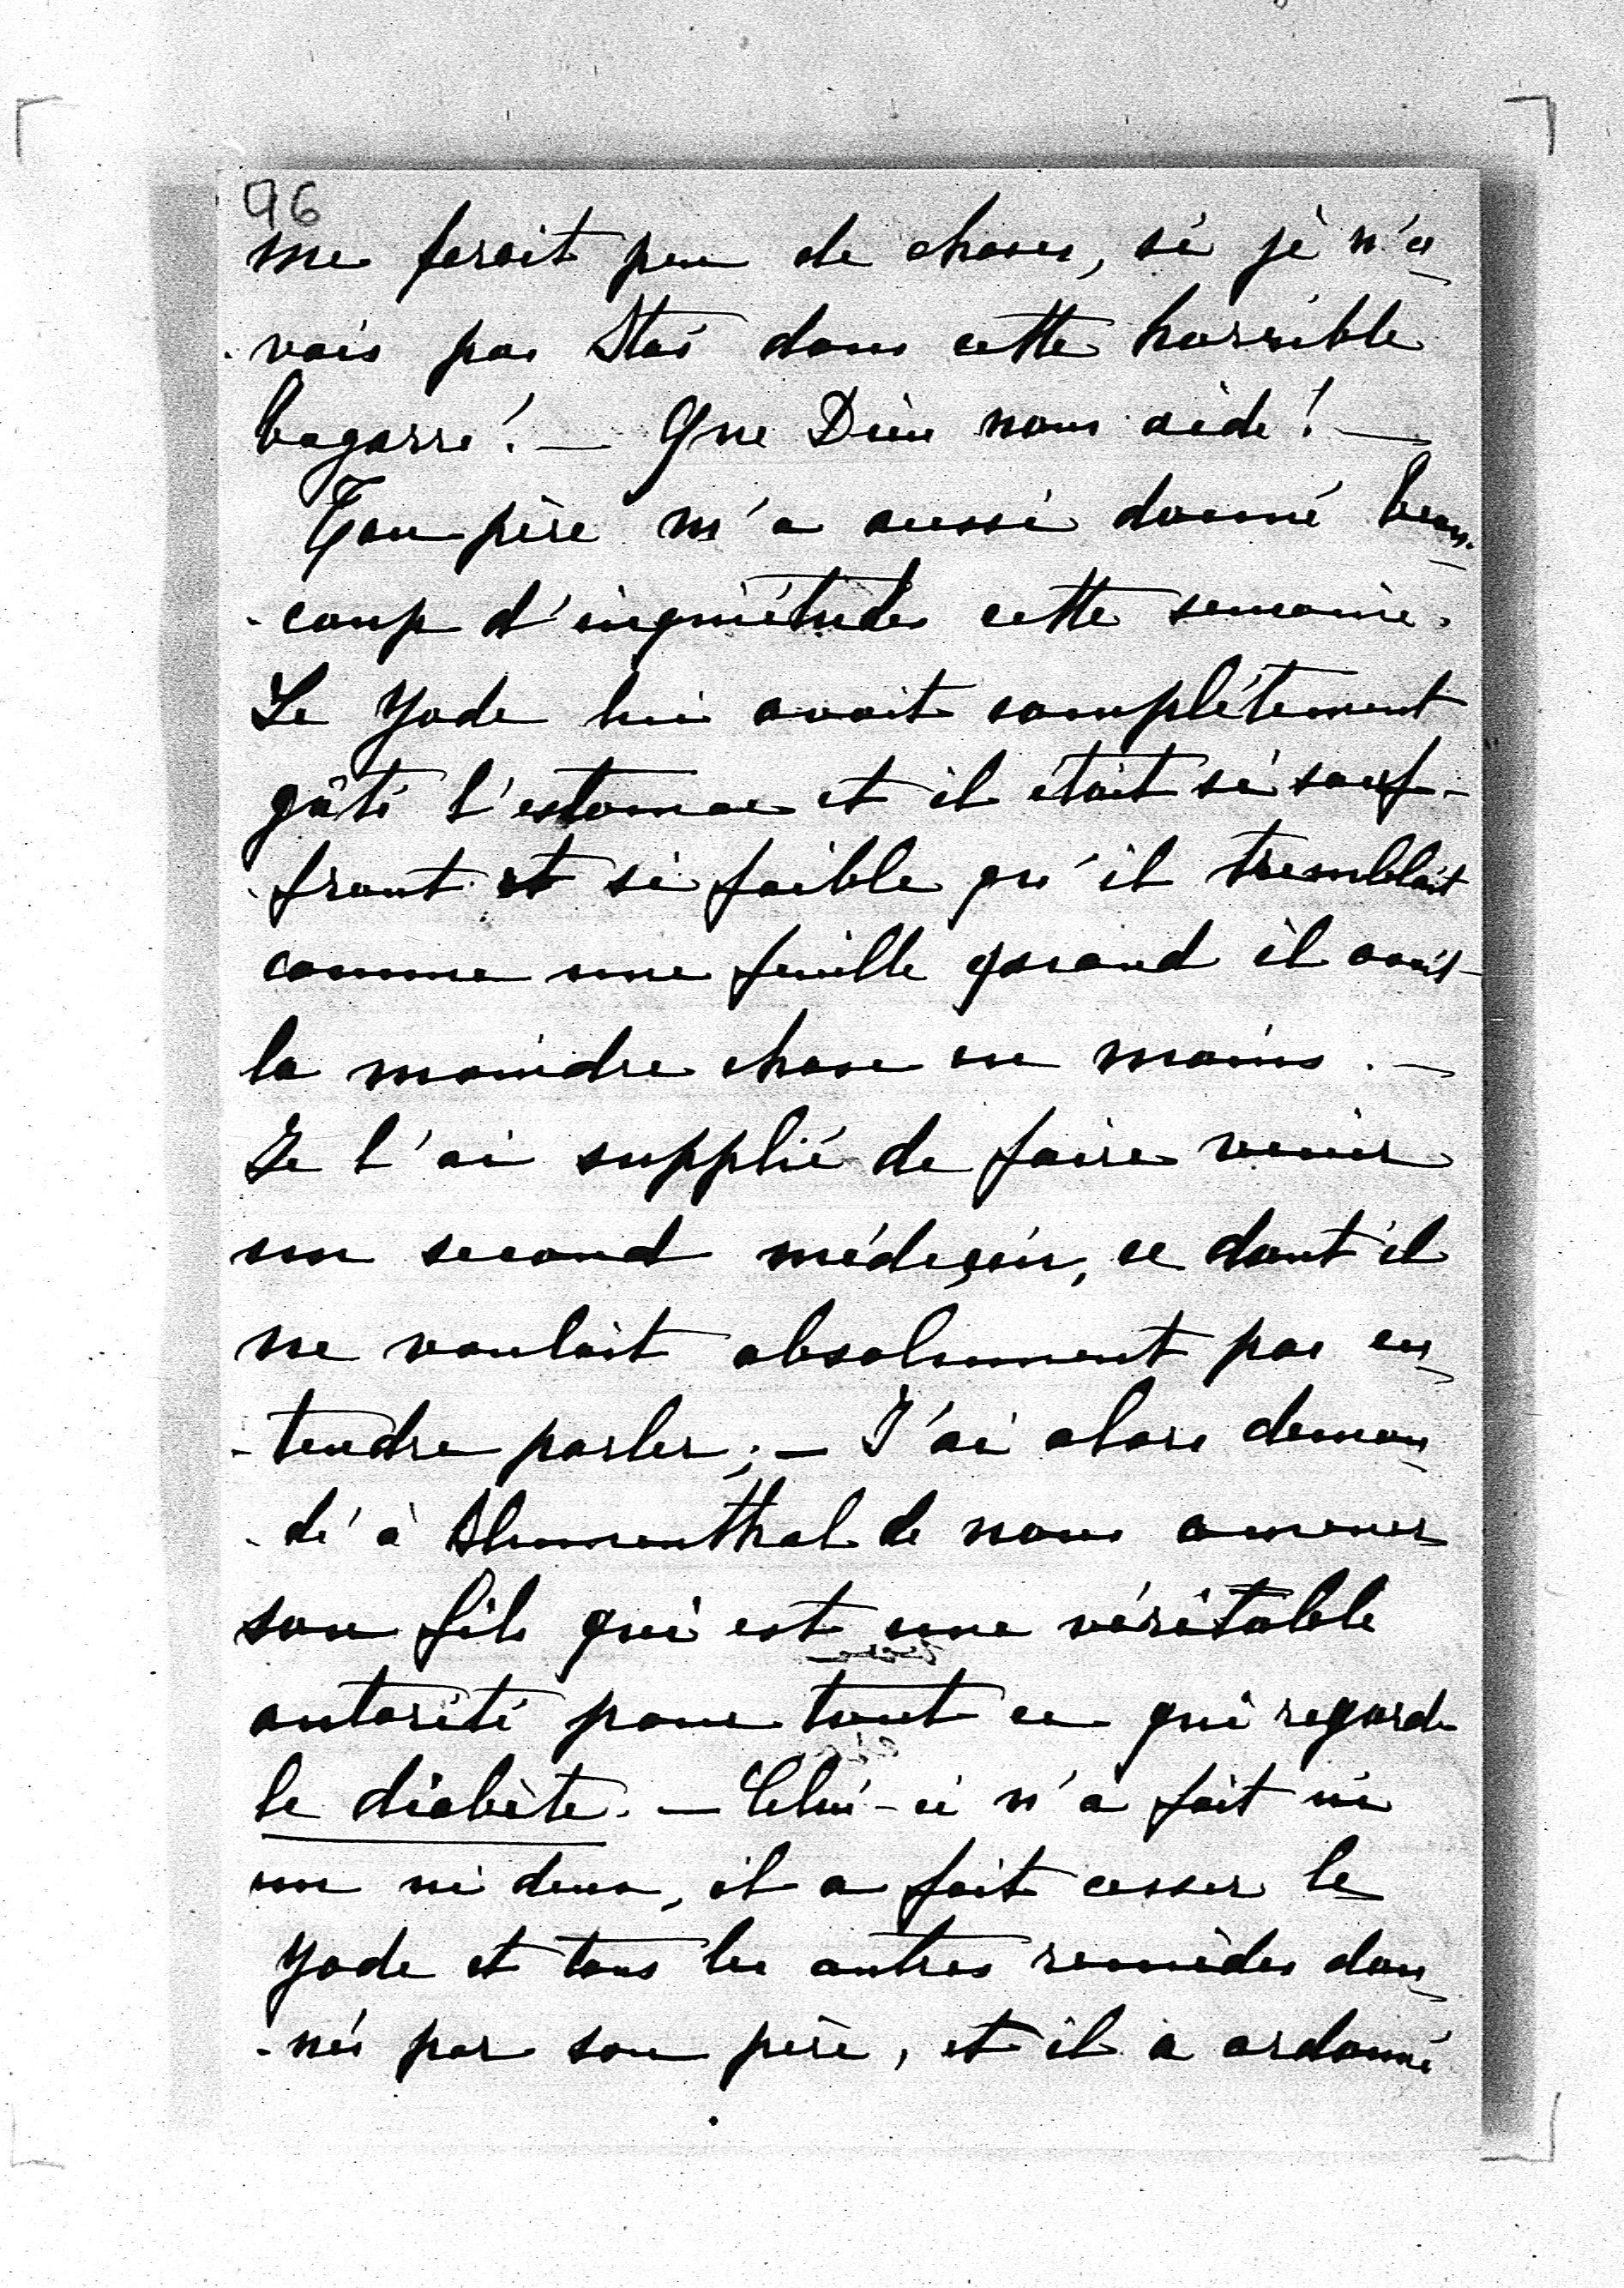 96
me feroit peu de choses, si je n'a_
-vais pas Stas dans cette horrible
bagarre! — Que Dieu nous aide! —
Ton père m'a aussi donné beau_
-coup d'inquiétudes cette semaine.
Le Yode lui avait complétement
gâté l'estomac et il était si souf-
-frant et si faible qu'il tremblait
comme une feuille quand il avait
la moindre chose en mains. —
Je l'ai supplié de faire venir
un second médeçin, ce dont il
ne voulait absolument pas en_
-tendre parler; — J'ai alors deman_
-dé à Blumenthal de nous amener
son fils qui est une véritable
autorité pour tout ce qui regarde
le diabète. — Celui-ci n'a fait ni
un ni deux, il a fait cesser le
Yode et tous les autres remèdes don_
-nés par son père, et il a ordonné